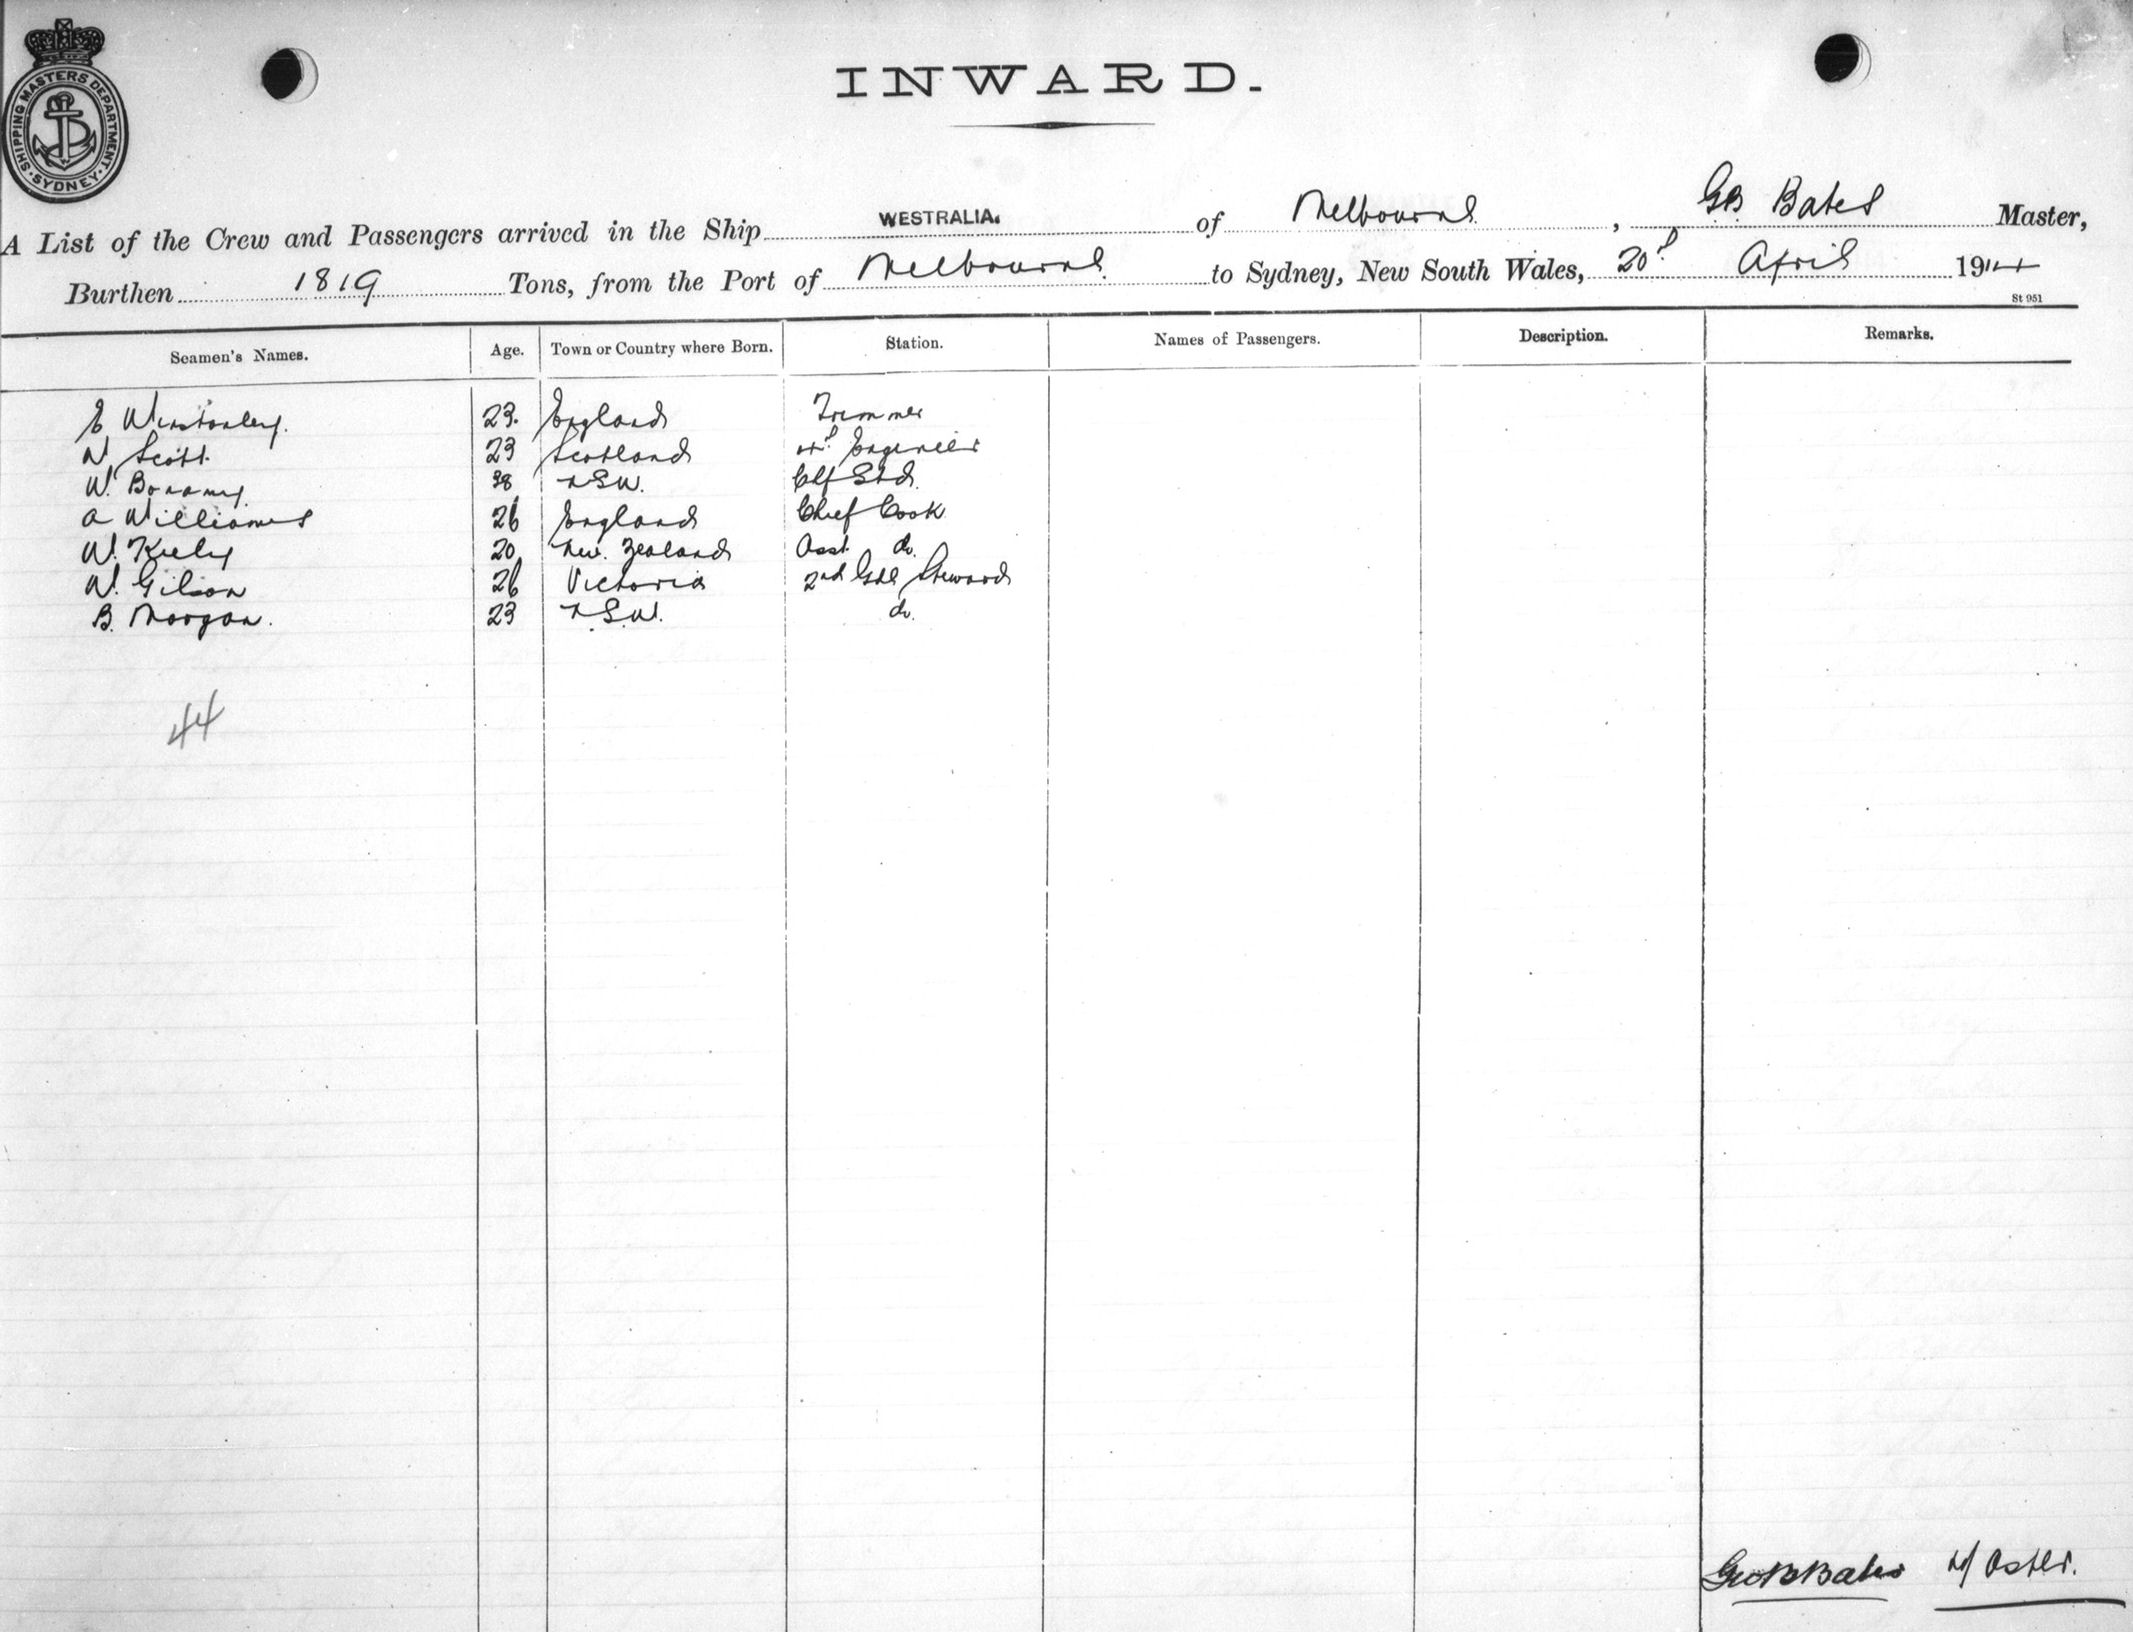 SHIPPING MASTERS DEPARTMENT. SYDNEY.
INWARD.
A List of the Crew and Passengers arrived in the Ship WESTRALIA. of Melbourne, G.B. Bates Master,
Burthen 1819 Tons, from the Port of Melbourne to Sydney, New South Wales, 20th April 1914
St 951
Seamen's Names. Age. Town or Country where Born. Station. Names of Passengers. Description. Remarks.
E Winstanley. 23. England Trimmer
W Scott. 23 Scotland 4th Engineer
W. Bonamy 38 NSW. Clf Std.
A Williams 26 England Chief Cook
W. Kiely 20 New Zealand Asst. do.
W. Gilson 26 Victoria 2nd Steward
B. Morgan. 23 N.S.W. do.
44
Geo B Bates Master.